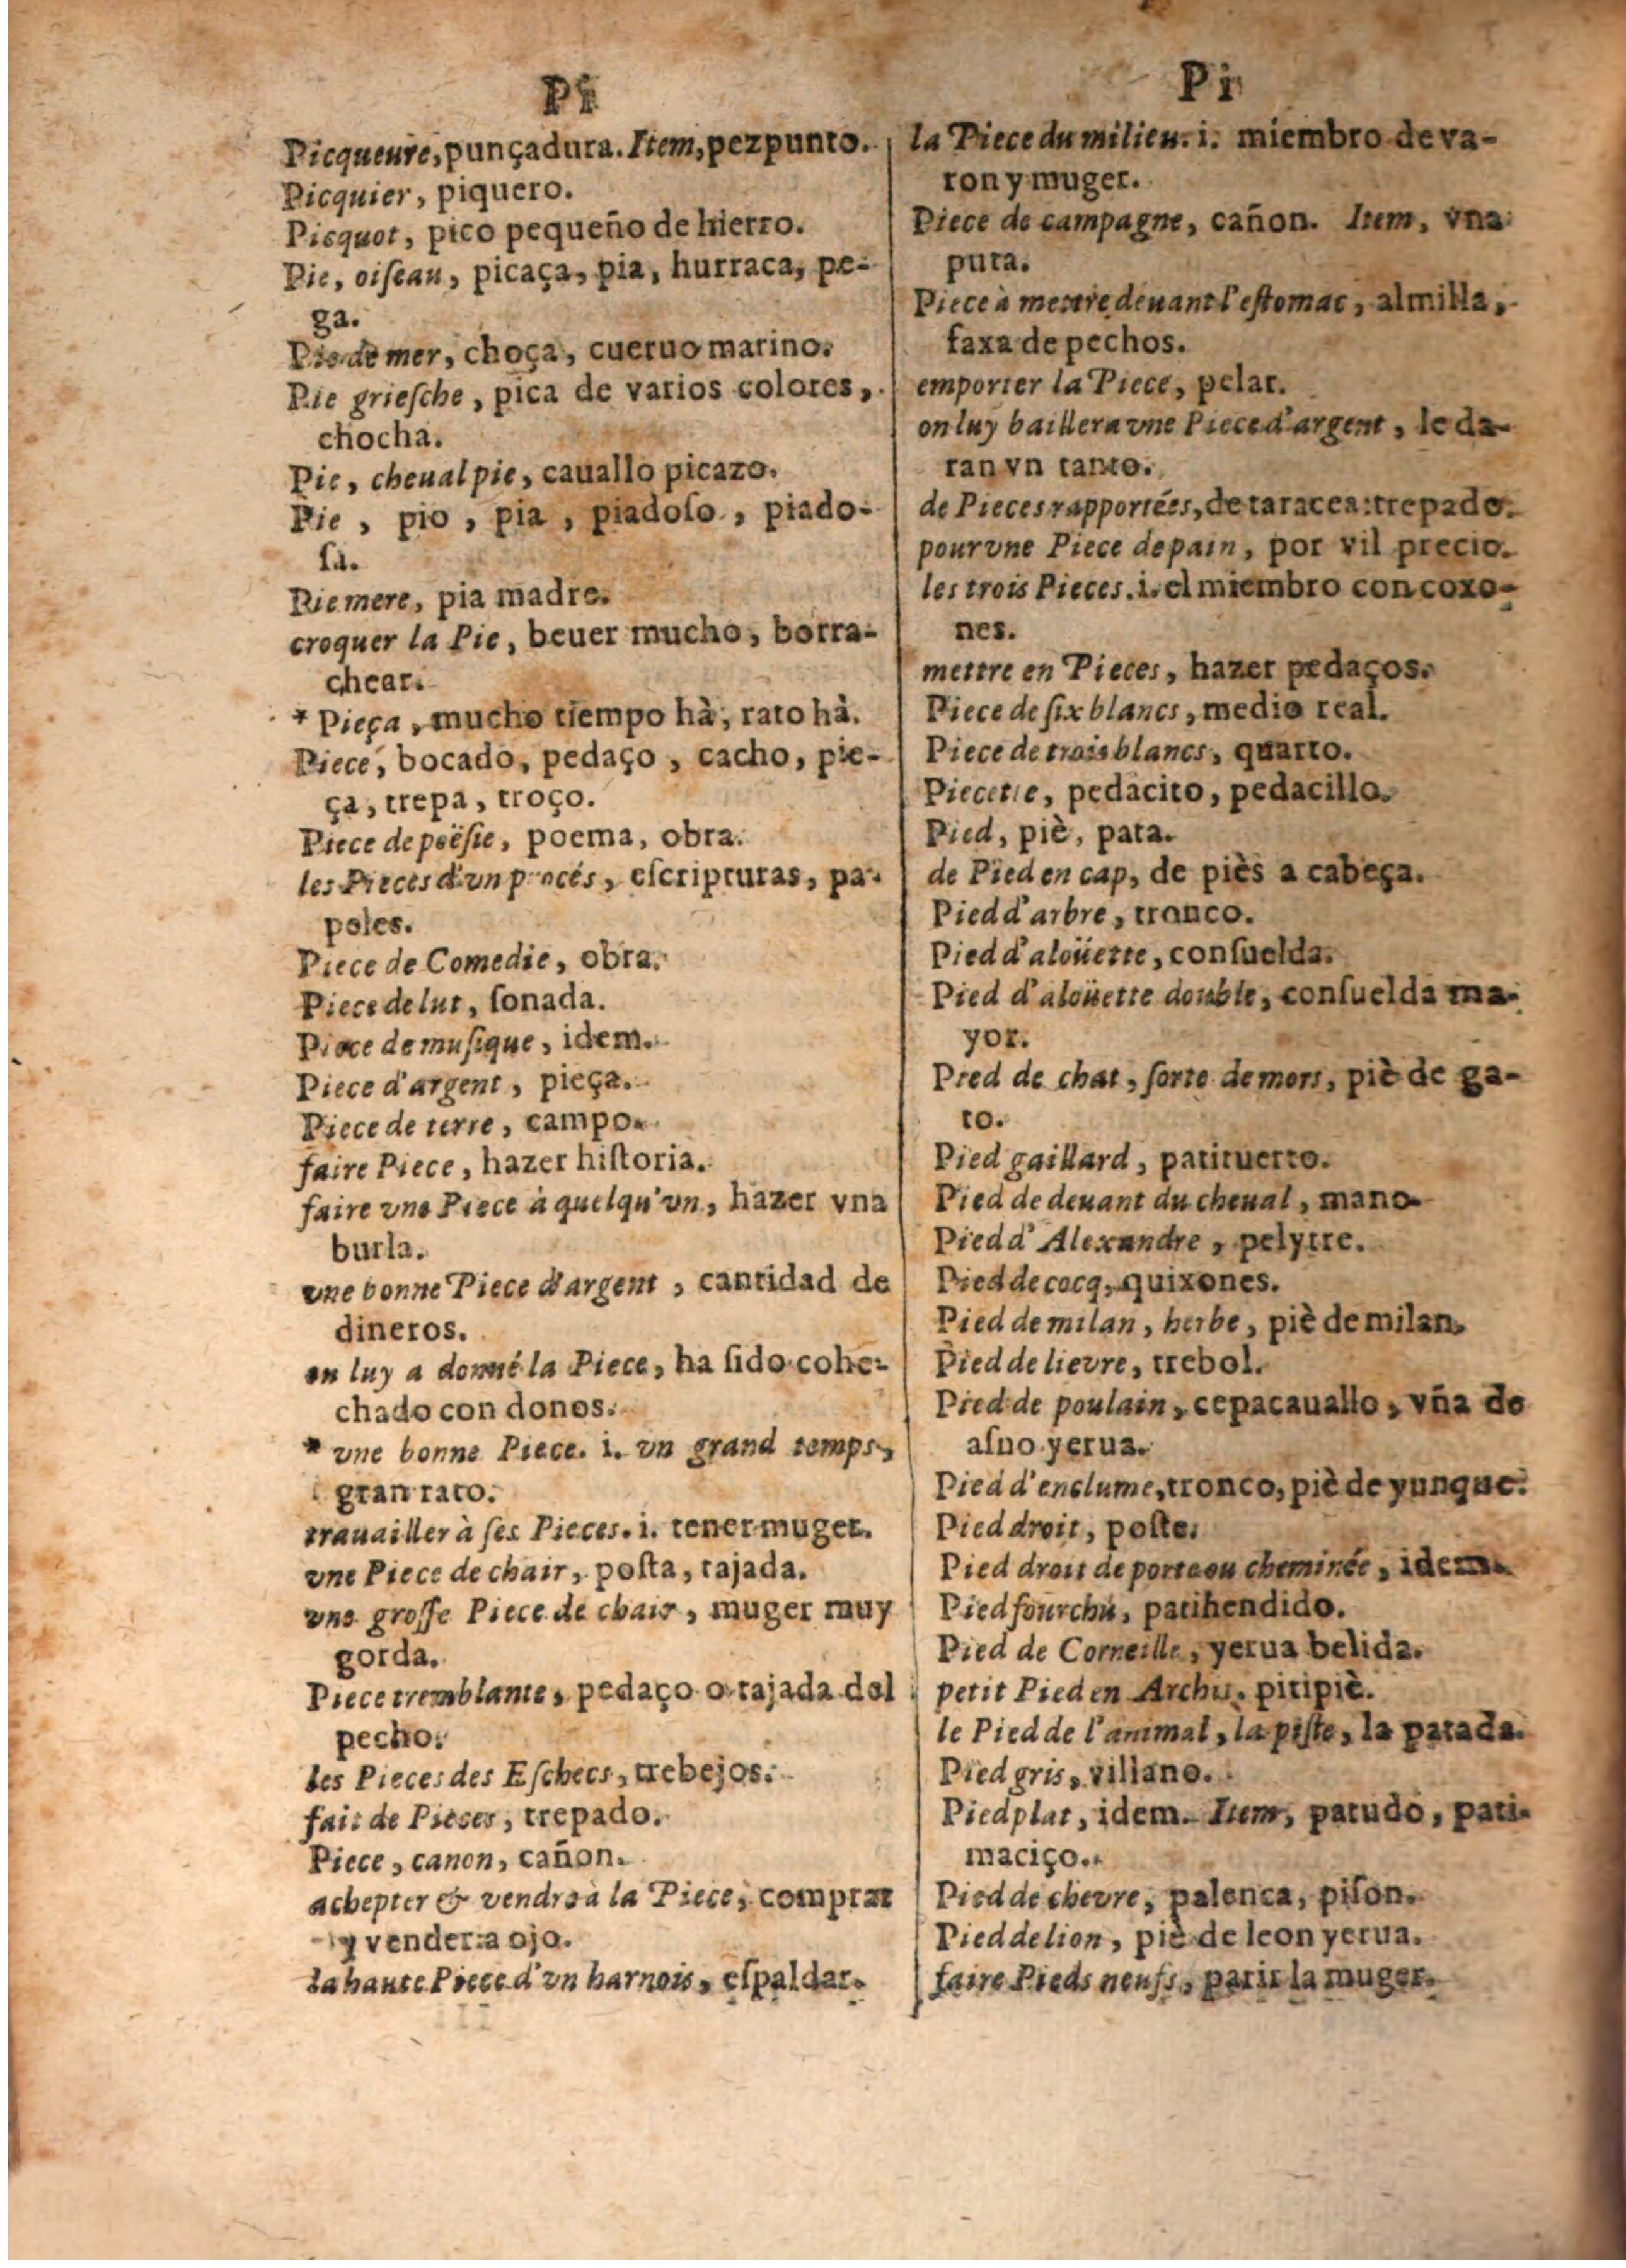 Pi
Picqueure, punçadura. Item, pezpunto.
Picquier, piquero.
Picquot, pico pequeño de hierro.
Pie, oiſeau, picaça, pia, hurraca, pe-
ga.
Pie de mer, choça, cueruo marino.
Pie grieſche, pica de varios colores,
chocha.
Pie, cheual pie, cauallo picazo.
Pie, pio, pia, piadoſo, piado-
ſa.
Pie mere, pia madre.
croquer la Pie, beuer mucho, borra-
chear.
* Pieça, mucho tiempo hà, rato hà.
Piece, bocado, pedaço, cacho, pie-
ça, trepa, troço.
Piece de poëſie, poema, obra.
les Pieces d'vn procés, eſcripturas, pa-
peles.
Piece de Comedie, obra.
Piece de lut, ſonada.
Piece de muſique, idem.
Piece d'argent, pieça.
Piece de terre, campo.
faire Piece, hazer hiſtoria.
faire vne Piece à quelqu'vn, hazer vna
burla.
vne bonne Piece d'argent, cantidad de
dineros.
on luy a donné la Piece, ha ſido cohe-
chado con dones.
* vne bonne Piece. i. vn grand temps,
gran rato.
trauailler à ſes Pieces. i. tener muger.
vne Piece de chair, poſta, tajada.
vne groſſe Piece de chair, muger muy
gorda.
Piece tremblante, pedaço o tajada del
pecho.
les Pieces des Eſchecs, trebejos.
fait de Pieces, trepado.
Piece, canon, cañon.
achepter & vendre à la Piece, comprar
y vender a ojo.
la haute Piece d'vn harnois, eſpaldar.
Pi
la Piece du milieu. i. miembro de va-
ron y muger.
Piece de campagne, cañon. Item, vna
puta.
Piece à mettre deuant l'eſtomac, almilla,
faxa de pechos.
emporter la Piece, pelar.
on luy baillera vne Piece d'argent, le da-
ran vn tanto.
de Pieces rapportées, de taracea: trepado.
pour vne Piece de pain, por vil precio.
les trois Pieces. i. el miembro con coxo-
nes.
mettre en Pieces, hazer pedaços.
Piece de ſix blancs, medio real.
Piece de trois blancs, quarto.
Piecette, pedacito, pedacillo.
Pied, piè, pata.
de Pied en cap, de piès a cabeça.
Pied d'arbre, tronco.
Pied d'aloüette, conſuelda.
Pied d'aloüette double, conſuelda ma-
yor.
Pied de chat, ſorte de mors, piè de ga-
to.
Pied gaillard, patituerto.
Pied de deuant du cheual, mano.
Pied d'Alexandre, pelytre.
Pied de cocq, quixones.
Pied de milan, herbe, piè de milan.
Pied de lievre, trebol.
Pied de poulain, cepacauallo, vña de
aſno yerua.
Pied d'enclume, tronco, piè de yunque.
Pied droit, poſte.
Pied droit de porte ou cheminée, idem.
Pied fourchu, patihendido.
Pied de Corneille, yerua belida.
petit Pied en Archi. pitipiè.
le Pied de l'animal, la piſte, la patada.
Pied gris, villano.
Pied plat, idem. Item, patudo, pati-
maciço.
Pied de chevre, palenca, piſon.
Pied de lion, piè de leon yerua.
faire Pieds neufs, parir la muger.